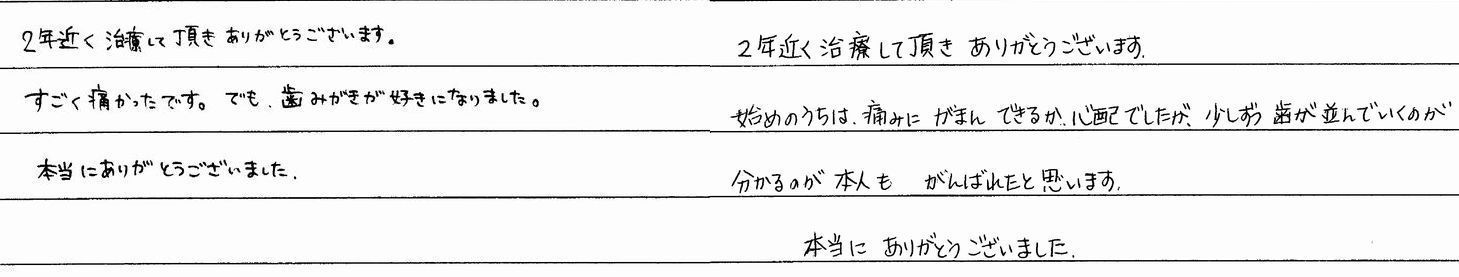 2年近く治療して頂きありがとうございます。
すごく痛かったです。でも、歯みがきが好きになりました。
本当にありがとうございました.
2年近く治療して頂き ありがとうございます.
始めのうちは、痛みに がまん できるか、心配でしたが、少しずつ 歯が並んでいくのが
分かるのが 本人も がんばれたと思います.
本当に ありがとうございました.